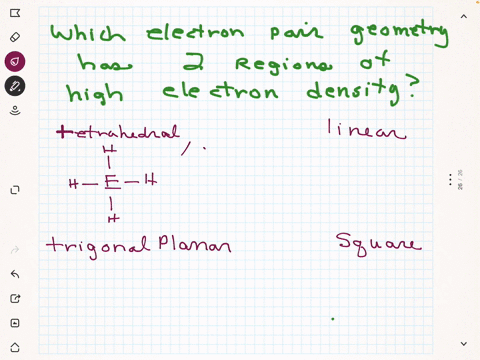 Which electron pair geometry
has 2 Regions of
high electron density?
tetrahedral
linear
H
H - E - H
H
trigonal Planar
Square
26 / 26